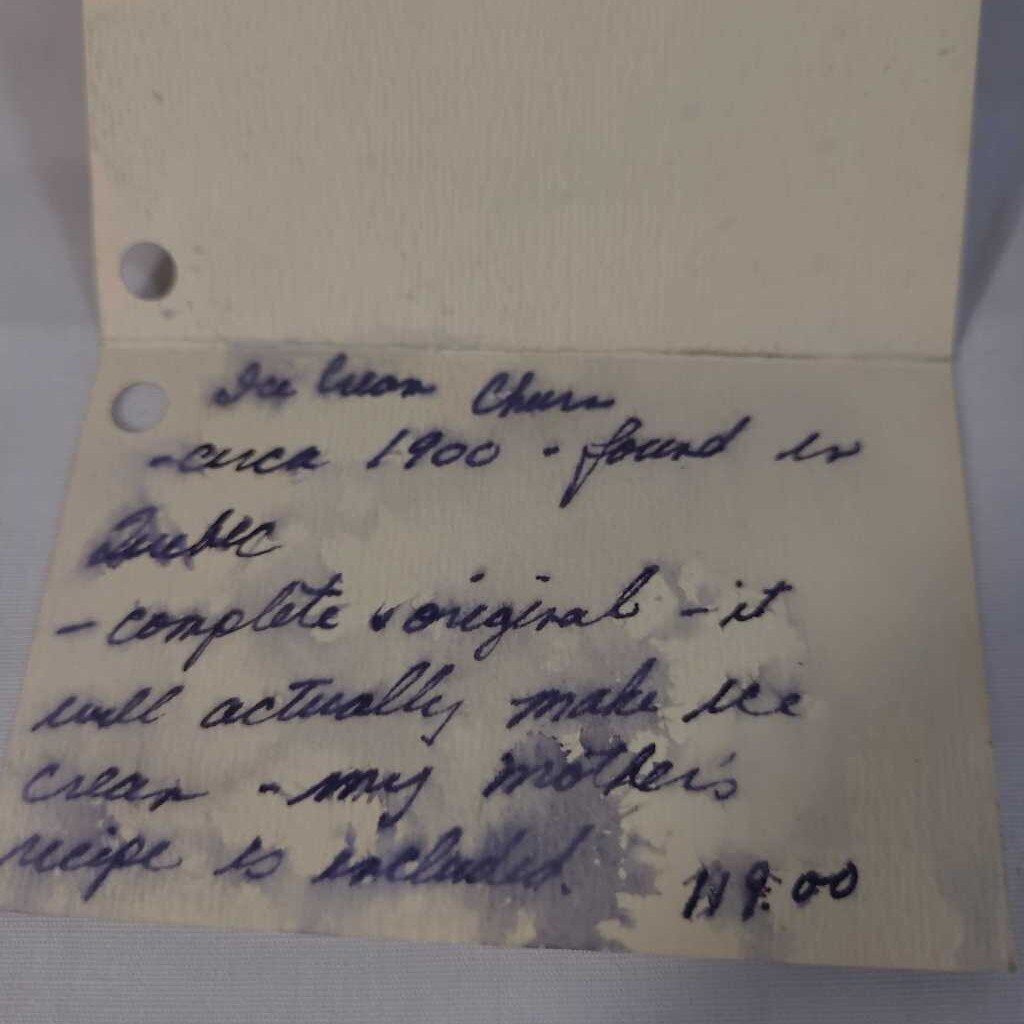 Ice Cream Churn
-circa 1900 - found in
Quebec
- complete & original - it
will actually make ice
cream - my mother's
recipe is included.
119.00